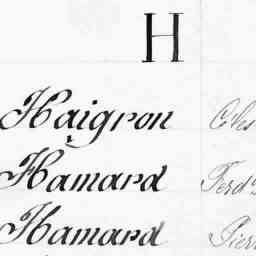 H
Haigron
Hamard Ferd
Hamard Pierr